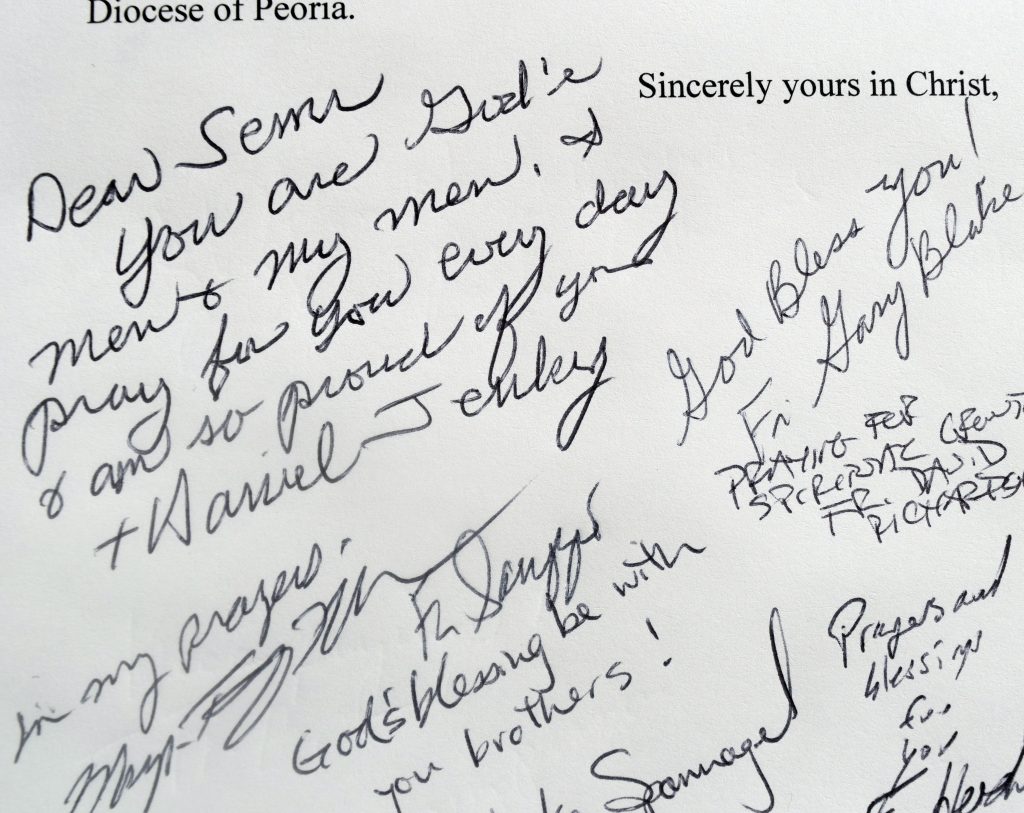 Diocese of Peoria.
Sincerely yours in Christ,
Dear Sems
You are God's
men & my men. I
pray for you every day
& am so proud of you
+ Daniel Jenky
God Bless you!
Fr. Gary Blake
PRAYING FOR
SPIRITUAL GROWTH
FR. DAVID
RICHARDSO
In my prayers.
Msgr.
Fr
God's blessing be with
you brothers!
Spannagel
Prayers and
blessings
for
you